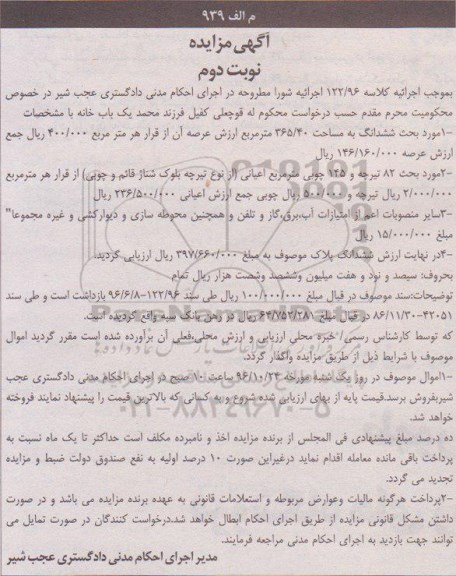 م الف ۹۳۹
آگهی مزایده
نوبت دوم
بموجب اجرائیه کلاسه ۱۲۲/۹۶ اجرائیه شورا مطروحه در اجرای احکام مدنی دادگستری عجب شیر در خصوص
محکومیت محرم مقدم حسب درخواست محکوم له قوچعلی کفیل فرزند محمد یک باب خانه با مشخصات
۱-مورد بحث ششدانگ به مساحت ۳۶۵/۴۰ مترمربع ارزش عرصه آن از قرار هر متر مربع ۴۰۰/۰۰۰ ریال جمع
ارزش عرصه ۱۴۶/۱۶۰/۰۰۰ ریال
۲-مورد بحث ۸۲ تیرچه و ۱۴۵ چوبی مترمربع اعیانی (از نوع تیرچه بلوک شناژ قائم و چوبی) از قرار هر مترمربع
۲/۰۰۰/۰۰۰ ریال تیرچه و ۵۰۰/۰۰۰ ریال چوبی جمع ارزش اعیانی ۲۳۶/۵۰۰/۰۰۰ ریال
۳-سایر منصوبات اعم از امتیازات آب،برق،گاز و تلفن و همچنین محوطه سازی و دیوارکشی و غیره مجموعا"
مبلغ ۱۵/۰۰۰/۰۰۰ ریال
۴-در نهایت ارزش ششدانگ پلاک موصوف به مبلغ ۳۹۷/۶۶۰/۰۰۰ ریال ارزیابی گردید.
بحروف: سیصد و نود و هفت میلیون وششصد وشصت هزار ریال تمام
توضیحات:سند موصوف در قبال مبلغ ۱۰۰/۰۰۰/۰۰۰ ریال طی سند ۱۲۲/۹۶-۹۶/۶/۸ بازداشت است و طی سند
۴۲۰۵۱-۸۶/۱۱/۳۰ در قبال مبلغ ۶۴/۷۵۲/۲۸۱ ریال در رهن بانک سپه واقع گردیده است.
که توسط کارشناس رسمی/ خبره محلی ارزیابی و ارزش محلی،فعلی آن برآورده شده است مقرر گردید اموال
موصوف با شرایط ذیل از طریق مزایده واگذار گردد.
۱-اموال موصوف در روز یک شنبه مورخه ۹۶/۱۰/۲۴ ساعت ۱۰ صبح در اجرای احکام مدنی دادگستری عجب
شیربفروش برسد.قیمت پایه از بهای ارزیابی شده شروع و به کسانی که بالاترین قیمت را پیشنهاد نمایند فروخته
خواهد شد.
ده درصد مبلغ پیشنهادی فی المجلس از برنده مزایده اخذ و نامبرده مکلف است حداکثر تا یک ماه نسبت به
پرداخت باقی مانده معامله اقدام نماید درغیراین صورت ۱۰ درصد اولیه به نفع صندوق دولت ضبط و مزایده
تجدید می گردد.
۲-پرداخت هرگونه مالیات وعوارض مربوطه و استعلامات قانونی به عهده برنده مزایده می باشد و در صورت
داشتن مشکل قانونی مزایده از طریق اجرای احکام ابطال خواهد شد.درخواست کنندگان در صورت تمایل می
توانند جهت بازدید به اجرای احکام مدنی مراجعه فرمایند.
مدیر اجرای احکام مدنی دادگستری عجب شیر
۰۲۱-۸۸۳۴۹۶۷۰-۵